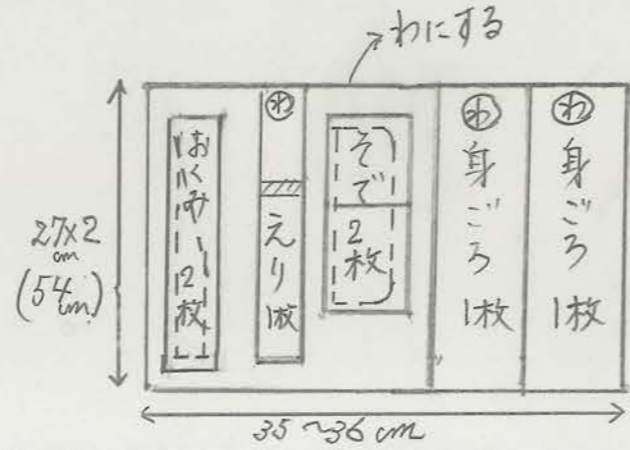 わにする
27×2
cm
(54
cm)
おくみ
2枚
わ
えり
1枚
そで
2枚
わ
身ごろ
1枚
わ
身ごろ
1枚
35~36cm